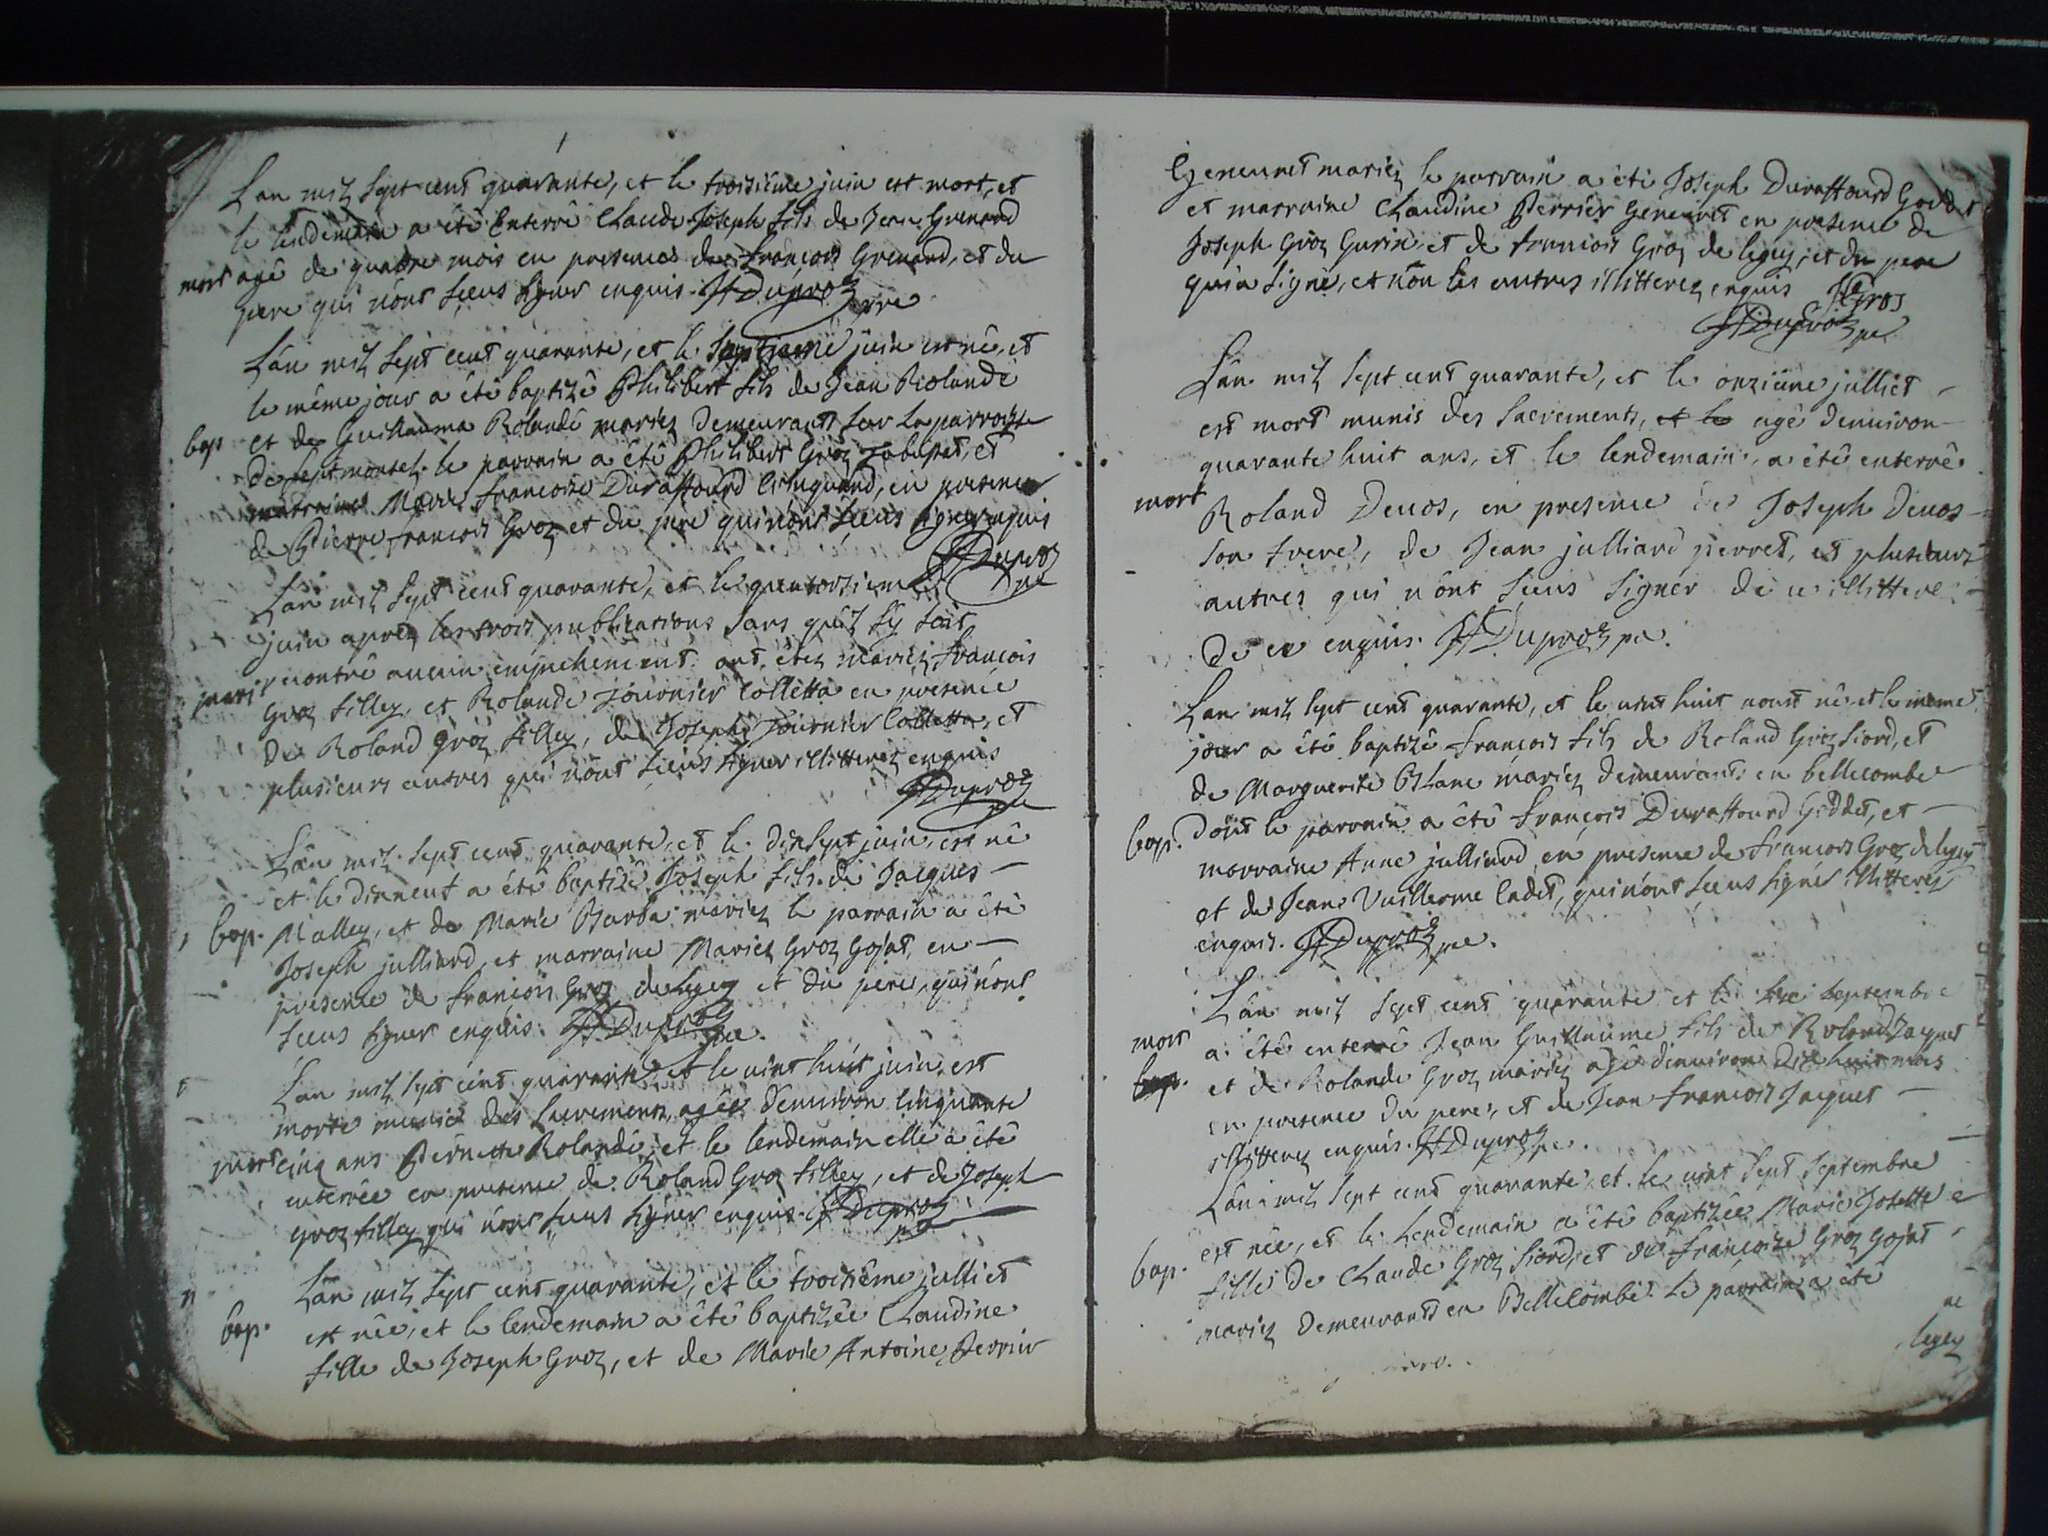 Lan mil sept cent quarante, et le troisième juin est mort, et
le lendemain a été enterré Claude Joseph fils de Jean Grenard
mort agé de quatre mois en presence de françois Grenard, et du
pere qui n'ont sceus signer enquis. Duproz pre
Lân mil sept cent quarante, et le septieme juin est né, et
le même jour a été baptizé Philibert fils de Jean Rolandé
bap et de Guillauma Rolandé mariez demeurants sur la parroisse
de septmoncel. le parrain a été Philibert Groz, et
marraine Marie françoise Duraffourd, en presence
de Pierre françois Groz et du pere qui n'ont sceus signer enquis
Duproz pre
Lân mil sept cent quarante, et le quatorzieme
juin aprez les trois publications sans qu'il s'y soit
mari recontré aucun empechement ont étez mariez françois
Groz filley, et Rolande Journier Colletta en presence
de Roland Groz filley, de Joseph Journier Colletta, et
plusieurs autres qui n'ont sceus signer illitterez enquis
Duproz pre
Lân mil sept cent quarante, et le dixsept juin, est né
et le dixneuf a été baptizé Joseph fils de Jacques
bap. Malley, et de Marie Barba mariez le parrain a été
Joseph julliard, et marraine Mariez Groz Gojat, en
presence de françois Groz de legey et du pere, qui n'ont
sceus signer enquis. Duproz pre.
Lan mil sept cent quarante et le vint huit juin, est
morte munie des sacrements, agée denuiron cinquante
mort cinq ans Pernette Rolandé, et le lendemain elle a été
enterrée en presence de Roland Groz filley, et de Joseph
Groz filley qui n'ont sceus signer enquis. Duproz pre
Lân mil sept cent quarante, et le troisième julliet
bap. est née, et le lendemain a été baptizée Claudine
fille de Joseph Groz, et de Marie Antoine Perrier
Geneuret mariez le parrain a été Joseph Duraffourd Goddet
et marraine Claudine Perrier Geneuret en presence de
Joseph Groz Gurin et de francois Groz de legey, et du pere
qui a signé, et non les autres illitterez enquis J Gros
Duproz pre
Lân mil sept cent quarante, et le onziéme julliet
est mort munis des sacrements, et le agé denuiron
quarante huit ans, et le lendemain, a été enterré
mort Roland Deuos, en presence de Joseph Deuos
son frere, de Jean julliard perret, et plusieurs
autres qui n'ont sceus signer illittere
de ce enquis. Duproz pre.
Lan mil sept cent quarante, et le vint huit aoust né et le meme
jour a été baptizé françois fils de Roland Groz siord, et
de Marguerite Blanc mariez demeurants en bellecombe
bap. dont le parrain a été françois Duraffourd Goddet, et
marraine Anne julliard en presence de francois Groz de legey
et de Jean Vuillerme Cadet, qui n'ont sceus signer illitterez
enquis. Duproz pre.
Lân mil sept cent quarante et le septembre
mort a été enterré Jean Guillaume fils de Roland Jacquet
bap. et de Rolande Groz mariez agé denuiron dix huit mois
en presence du pere, et de Jean francois Jacquet
illitterez enquis. Duproz pre.
Lân mil sept cent quarante et le vint sept septembre
est née, et le lendemain a été baptizée Marie Josette
bap. fille de Claude Groz siord, et de françoise Groz Gojat
mariez demeurants en Bellecombe. le parrain a été
legey